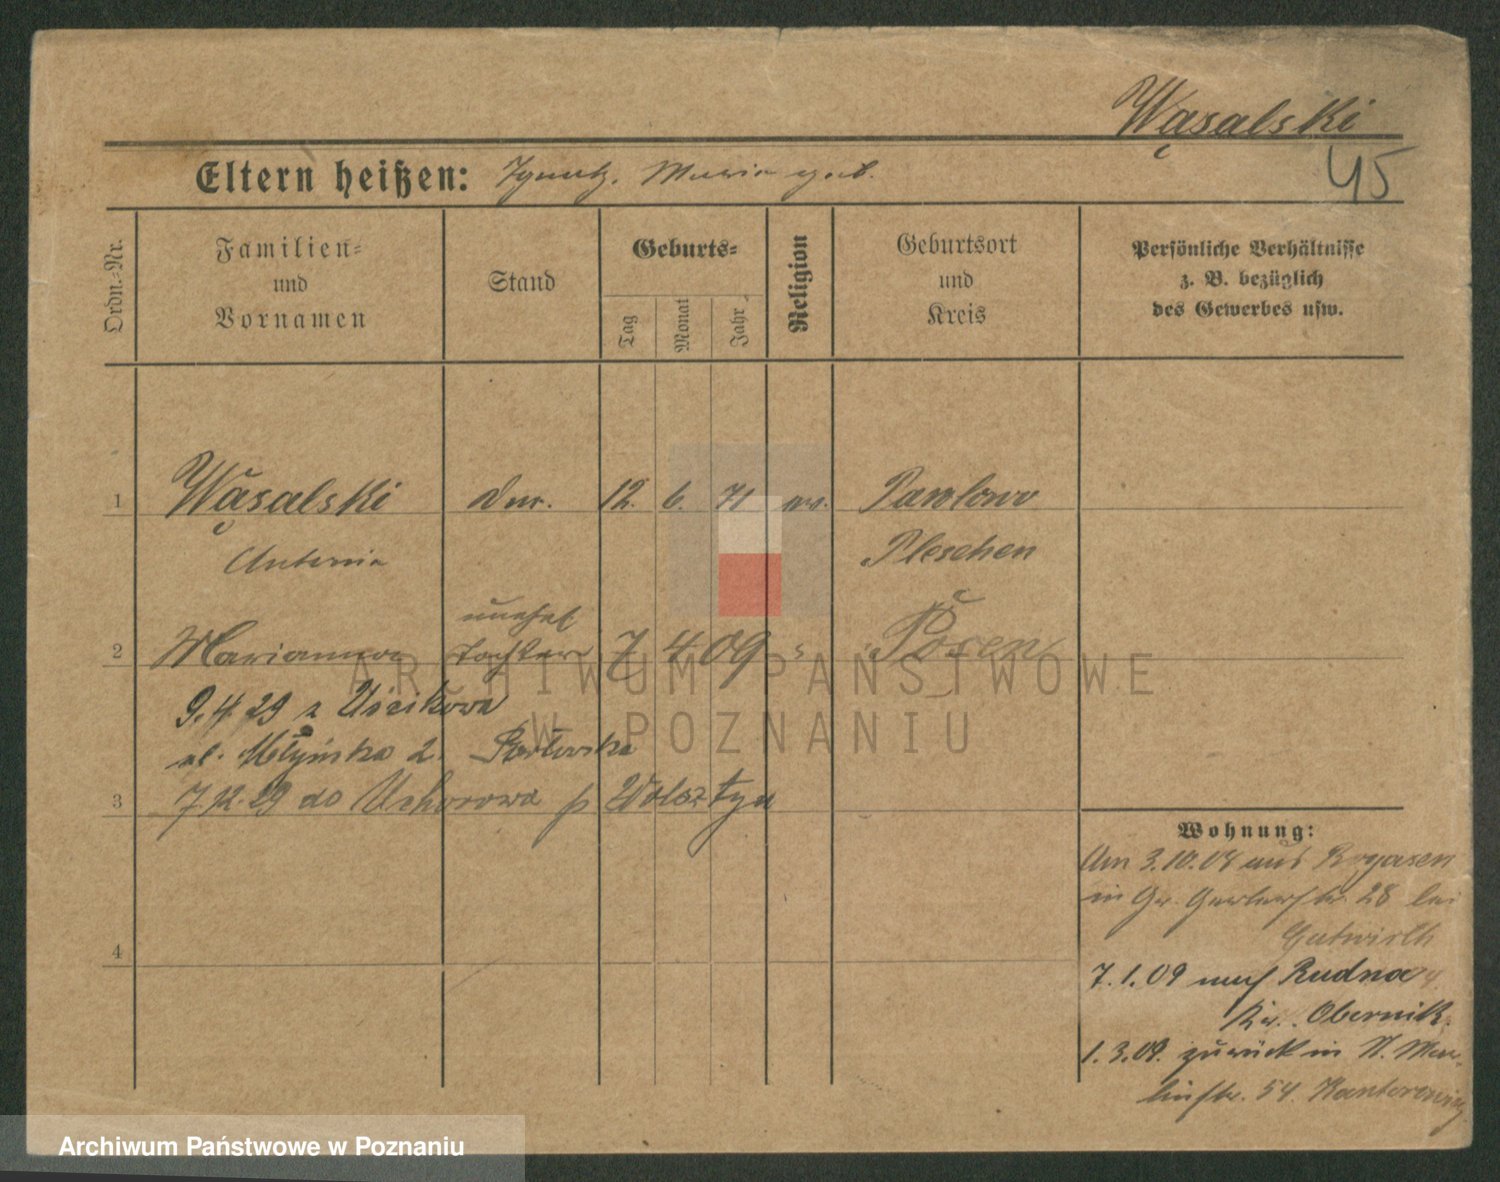 Wąsalski
45
Eltern heißen: Ignatz, Maria geb.
Ordn.=Nr.
Familien=
und
Vornamen
Stand
Geburts=
Tag
Monat
Jahr
Religion
Geburtsort
und
Kreis
Persönliche Verhältnisse
z. B. bezüglich
des Gewerbes usw.
1 Wąsalski 12. 6. 71 Pawlowo
Antonia Pleschen
unehel
2 Marianna Tochter 7 4 09 Posen
9.4.29 z Uścikowa
ul. Młyńska 2.
3 7.12.29 do Uchorowa p Wolsztyn
4
Wohnung:
Am 3.10.08 aus Rogasen
in Gr. Gerberstr. 28 bei
Gutwirth
7.1.09 nach Rudna
Kr. Obernik.
1.3.09. zurück in N.
54. Kantorowicz
ARCHIWUM PAŃSTWOWE
W POZNANIU
Archiwum Państwowe w Poznaniu